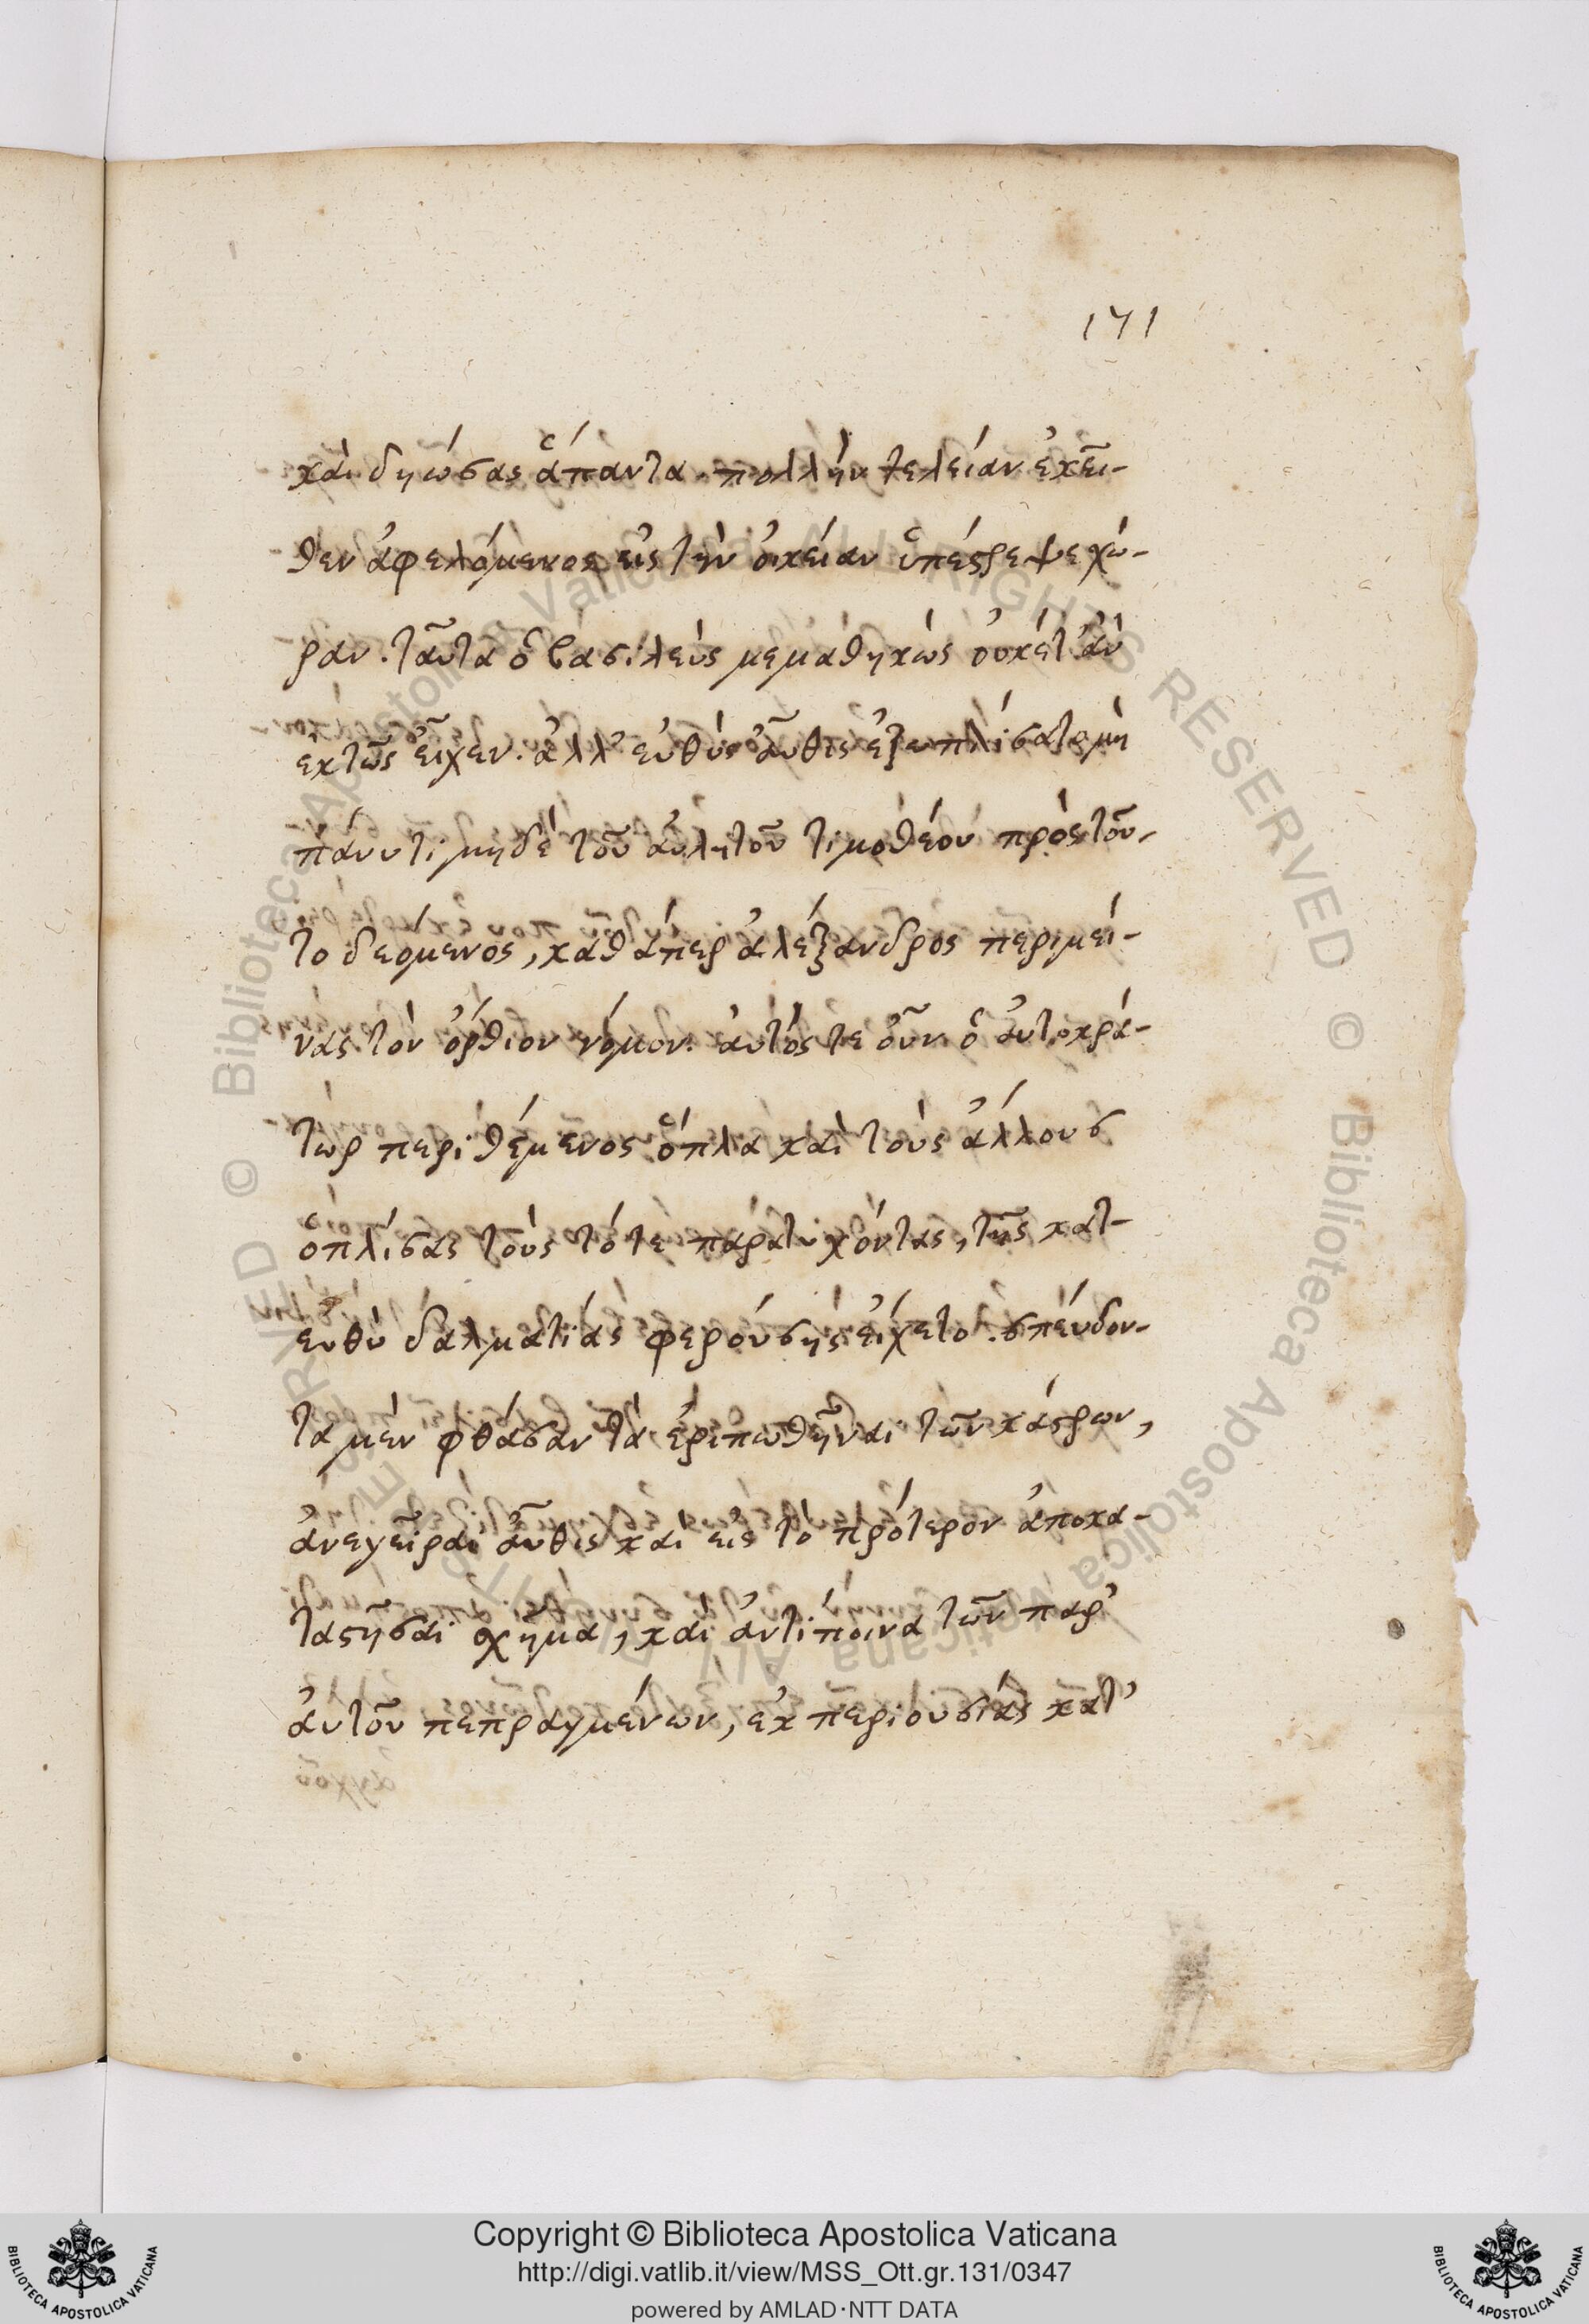 171
καὶ δηώσας ἅπαντα πολλὴν λείαν ἐκεῖ-
θεν ἀφελόμενος εἰς τὴν οἰκείαν ὑπέστρεψε χώ-
ραν. ταῦτα ὁ βασιλεὺς μεμαθηκὼς οὐκέτ' ἀν
εκτῶς εἶχεν. ἀλλ' εὐθὺς αὖθις ἐξωπλίσατο μὴ
πάνυ τι μηδὲ τοῦ αὐλητοῦ τιμοθέου πρὸς τοῦ-
το δεόμενος, καθάπερ ἀλέξανδρος περιμεί-
νας τὸν ὄρθιον νόμον. αὐτός τε οὖν ὁ αὐτοκρά-
τωρ περιθέμενος ὅπλα καὶ τοὺς ἄλλους
ὁπλίσας τοὺς τότε παρατυχόντας, τῆς κατ-
ευθὺ δαλματίας φερούσης εἴχετο. σπεύδον-
τα μὲν φθάσαντα ἐριπωθῆναι τῶν κάστρων,
ἀνεγεῖραι αὖθις καὶ εἰς τὸ πρότερον ἀποκα-
ταστῆσαι σχῆμα, καὶ ἀντίποινα τῶν παρ'
αὐτοῦ πεπραγμένων, ἐκ περιουσίας κατ'
Copyright © Biblioteca Apostolica Vaticana
http://digi.vatlib.it/view/MSS_Ott.gr.131/0347
powered by AMLAD·NTT DATA
BIBLIOTECA APOSTOLICA VATICANA
BIBLIOTECA APOSTOLICA VATICANA